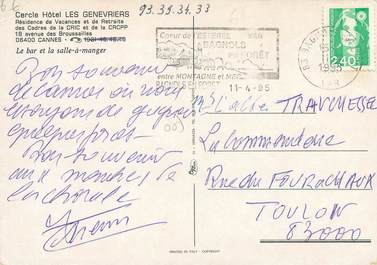 93.35.34.33
Cercle Hôtel LES GENEVRIERS
Résidence de Vacances et de Retraite
des Cadres de la CRIC et de la CRCPP
18 avenue des Broussailles
06400 CANNES
Le bar et la salle-à-manger
Bon souvenir
de Cannes où nous
essayons de gagner
quelques
Bon souvenir
aux membres de
la chorale
Cœur de l'ESTEREL VAR
BAGNOLS
EN FORÊT
entre MONTAGNE et MER
11-4-95
83 BAGNOLS
1995
VAR
2,40
TRAUCHESSE
La Commanderie
Rue du FOURACHAUX
TOULON
83000
PRINTED IN ITALY - COPYRIGHT